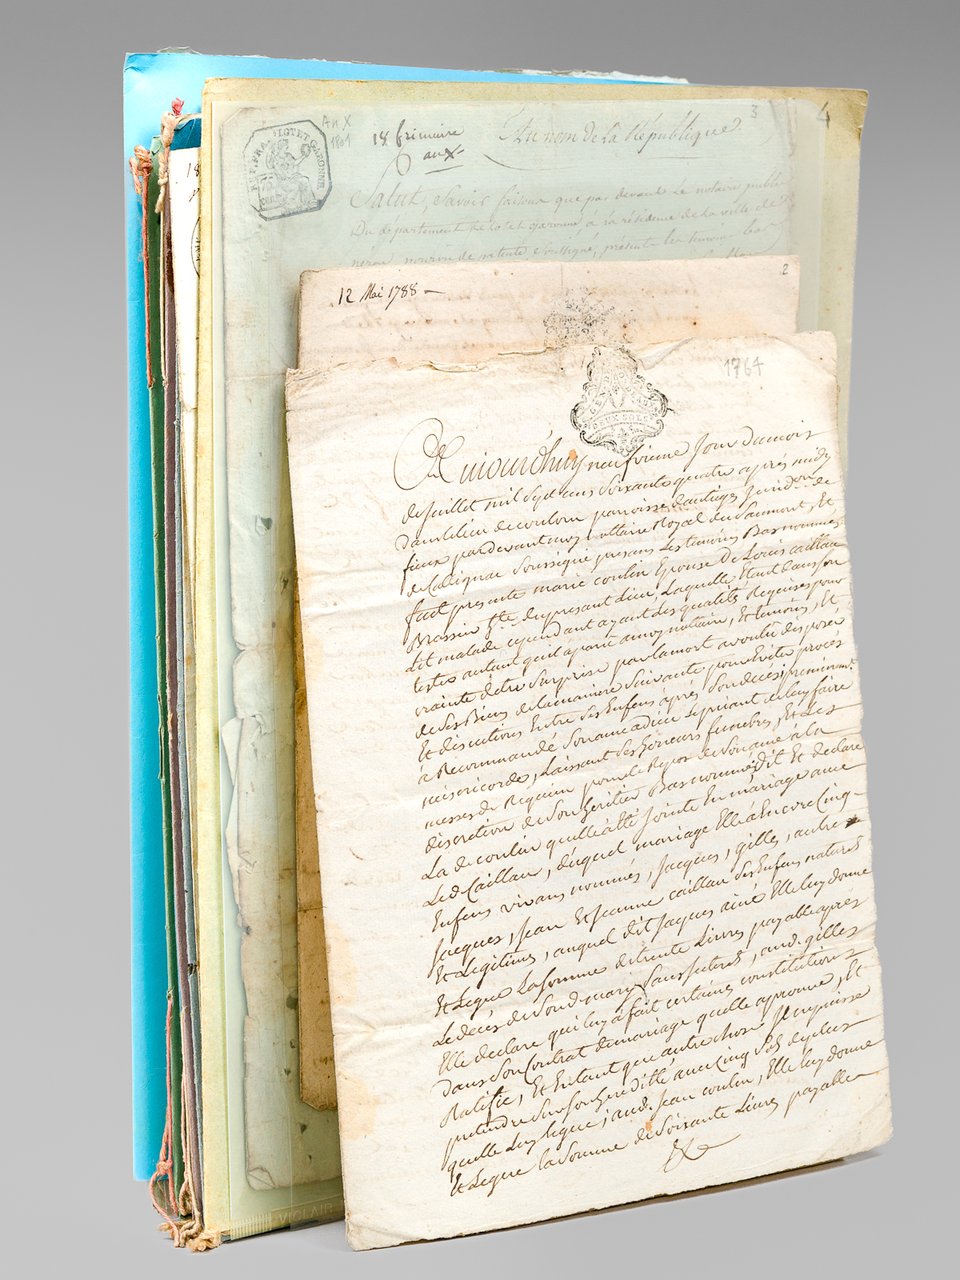 An X
1801
18 frimaire
an X
Au nom de la République
3
4
REP. FRA. LOT ET GARONNE
Salut, Savoir faisons que par devant Le notaire public
Du département de Lot et garonne à la résidence de La ville de
patente soussigné, présents les temoins bas
12 Mai 1788 –
2
1764
GEN
DEUX SOLS
Aujourdhuy neufvieme Jour du mois
de Juillet mil Sept cens Soixante quatre après midy
dans le lieu de coulom parroisse dautiege Juridon de
fieux par devant moy Nottaire Royal du Saumont, Et
de Calignac Soussigné presans Les temoins Bas nommés
fait presante marie coulin Epouse De Louis caillau
Brassier hte du presant Lieu, Laquelle Etant dans son
Lit malade cependant ayant des qualités Requises pour
tester autant quil a paru à moy nottaire, Et temoins, Et
crainte d'être Surprise par la mort a voulu disposer
de Ses Biens de la maniere Suivante pour Eviter procés
Et discutions Entre Ses Enfens après Son deces; premierement
à Recommandé Son ame a dieu Le priant de luy faire
misericorde, Laissant Ses honeurs funebres, Et Les
messes de Requiem pour le Repos de Son ame à la
discretion de Son heritier Bas nommé, Dit Et declare
La de coulin quelle à Eté Jointe En mariage avec
Led Caillau, duquel mariage Elle à Encore Cinq
Enfens vivans nommés, Jacques, gilles, autre
Jacques, Jean Et Jeanne caillau Ses Enfens naturels
Et Legitimes, auquel dit Jacques ainé Elle luy donne
Et Legue La Somme de trente Livres payable après
Le decès de Son d mary Sans Interet, aud. gilles
Elle declare qui luy à fait certaines constitutions
dans Son Contrat de mariage quelle approuve, Et
Ratifie, Et Entant que autre chose Il ny puisse
pretendre Sur Son heredité avec cinq Sols de plus
quelle Luy legue; aud. Jean coulin, Elle luy donne
Et Legue la Somme de Soixante Livres payables
VICLAIR